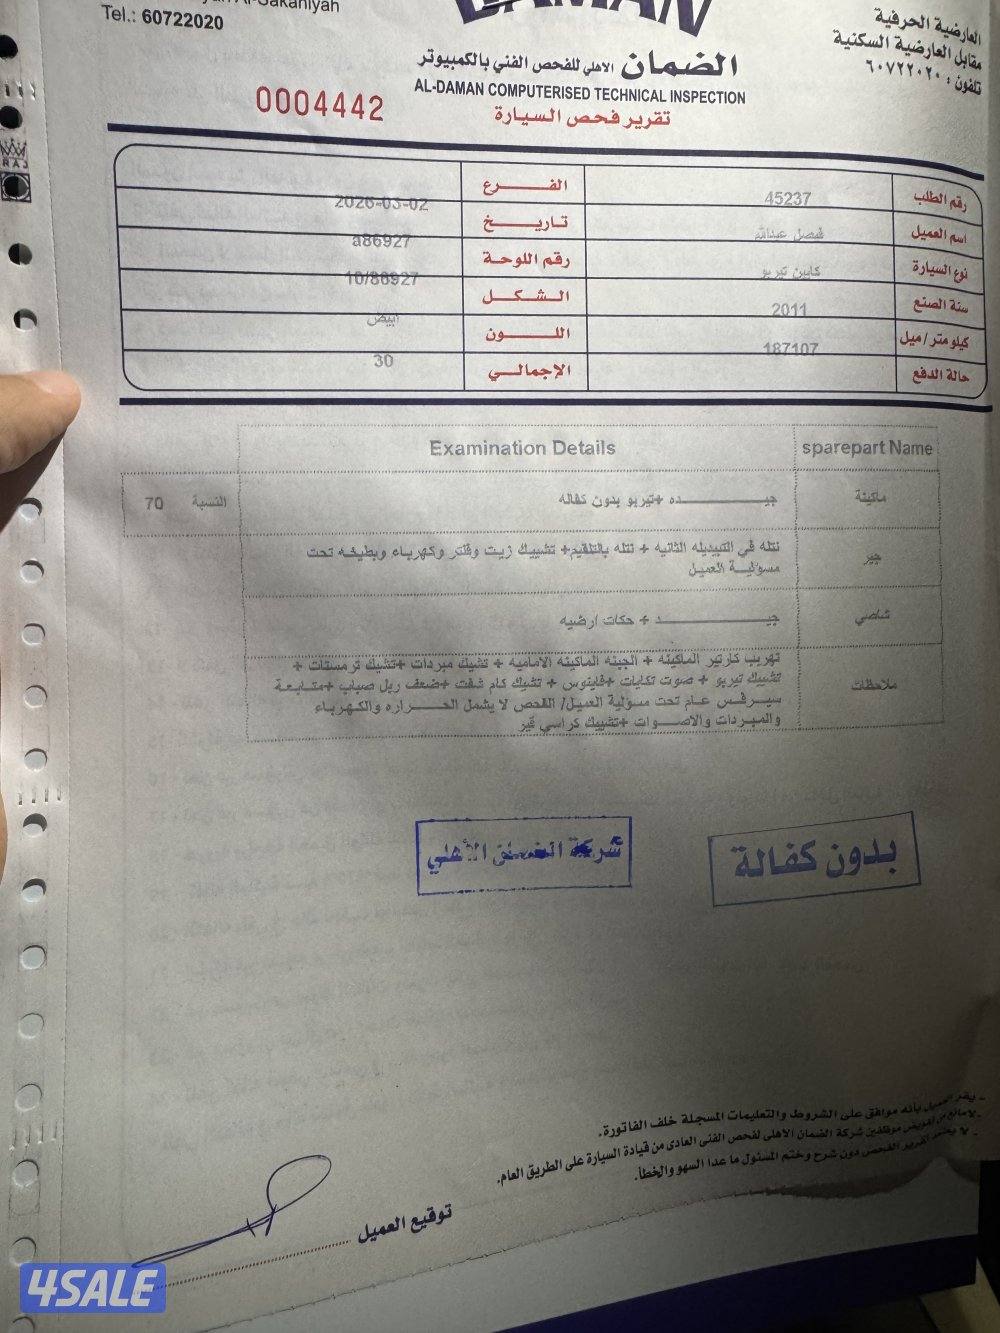 Tel.: 60722020
DAMAN
العارضية الحرفية
مقابل العارضية السكنية
تلفون : ٦٠٧٢٢٠٢٠
الضمان الاهلي للفحص الفني بالكمبيوتر
AL-DAMAN COMPUTERISED TECHNICAL INSPECTION
0004442
تقرير فحص السيارة
رقم الطلب 45237 الفـــرع
اسم العميل فيصل عبدالله تاريـــخ 2026-03-02
نوع السيارة كايين تيربو رقم اللوحـة a86927
سنة الصنع 2011 الـشـكـل 10/86927
كيلو متر/ميل 187107 اللـــون ابيض
حالة الدفع الإجمالـــي 30
sparepart Name Examination Details
ماكينة جيـــــــده +تيربو بدون كفاله النسبة 70
جير نتله في التبيديله الثانيه + نتله بالتلقيم+ تشييك زيت وفلتر وكهرباء وبطيخه تحت
مسؤليـة العميل
شاصي جيـــــــد + حكات ارضيه
ملاحظات تهريب كارتير الماكينه + الجبنه الماكينه الاماميه + تشيك مبردات +تشيك ترمستات +
تشييك تيربو + صوت تكايات +فاينوس + تشيك كام شفت +ضعف ربل صباب +متابـعة
سيـرفـس عـام تحت مسؤلية العميل/ الفحص لا يشمل الحـــراره والكـهرباء
والمبـردات والاصـوات +تشييك كراسي قير
شركة الضمان الأهلي
بدون كفالة
- يقر العميل بأنه موافق على الشروط والتعليمات المسجلة خلف الفاتورة.
- لا مانع من تفويض موظفين شركة الضمان الاهلى لفحص الفنى العادى من قيادة السيارة على الطريق العام.
- لا يعتمد تقرير الفحص دون شرح وختم المسئول ما عدا السهو والخطأ.
توقيع العميل
4SALE